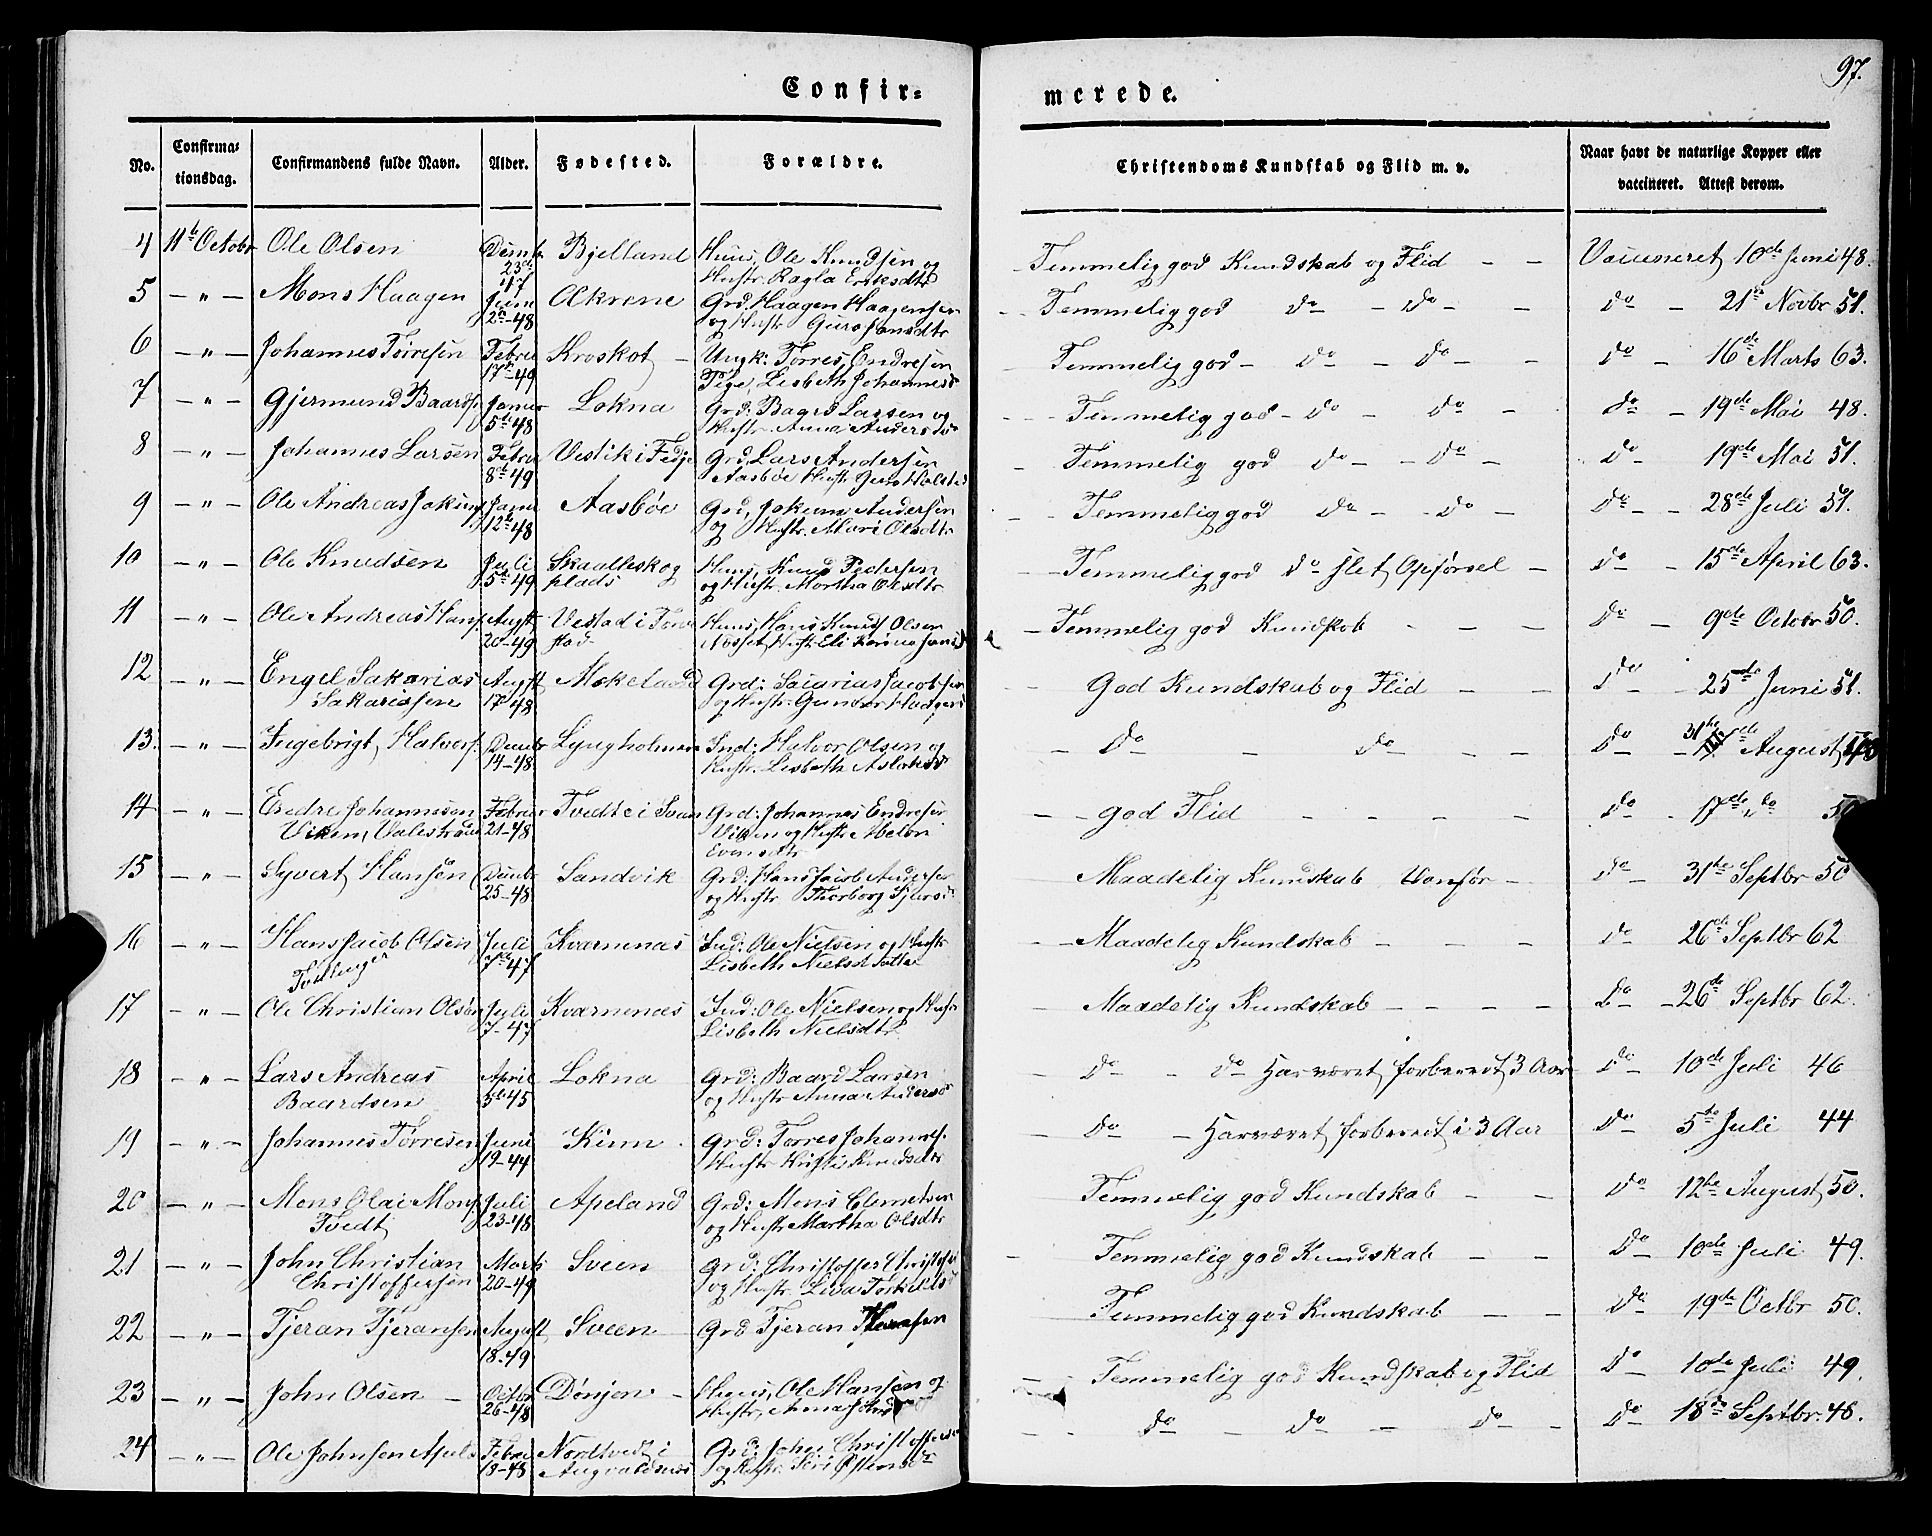 97.
Confir= merede.
No. Confirma= tionsdag. Confirmandens fulde Navn. Alder. Fødested. Forældre. Christendoms Kundskab og Flid m. v. Naar havt de naturlige Kopper eller vaccineret. Attest derom.
4 11te Octobr Ole Olsen Decmb. 23de 47 Bjelland Huus, Ole Knudsen og Hustr. Ragla Eriksdtr Temmelig god Kundskab og Flid — — Vaccineret 10de Juni 48.
5 — " — Mons Haagen Juni 2de-48 Ækrene Grd. Haagen Haagensen og Hustr. Guro Jonsdtr Temmelig god do — do — — do — 21de Novbr 51.
6 — " — Johannes Torresen Febru 17de-49 Kroskot — Ungk: Torres Endresen Pige, Lisbeth Johannesd Temmelig god — do — do — do — 16de Marts 63.
7 — " — Gjermund Baards Janur 5de 48 Lokna Grd: Baard Larsen og Hustr. Anna Andersdr Temmelig god — do — do — do — 19de Mai 48.
8 — " — Johannes Larsen Febru 8de 49 Vestik i Fedje Grd, Lars Andersen Aasbøe Hustr. Temmelig god do — — do — do — 19de Mai 51.
9 — " — Ole Andreas Jokums Janu 12te 48 Aasbøe Grd, Jokum Andersen og Hustr. Mari Olsdtr Temmelig god do — — do — do — — 28de Juli 51.
10 — " — Ole Knudsen Juli 5de 49 Skaalleskog plads Huus, Knud Pedersen og Hustr. Martha Olsdtr Temmelig god do slet Opførsel — do — 15de April 63.
11 — " — Ole Andreas Hans Augst 20-49 Vestad i Torve stad Huus, Hans Knuds Olsen Hustr. Eli Temmelig god Kundskab — — — do — 9de Octobr 50.
12 — " — Engel Sakarias Sakariassen Augst 17de 48 Mekeland Grd: Sacarias Jacobsen og Hustr. Gunder God Kundskab og Flid — — do — 25de Juni 51.
13. — " — Ingebrigt Halvors Decmbr 14-48 Lyngholmen Ind: Halvor Olsen og Hustr. Lisbeth Aslaksd — do — do — — do — 31te August
14 — " — Endre Johannesen Vikem, Valestrand Februr 21-48 Tvedte i Sveen Grd: Johannes Endresen Viken og Hustr. Evensdtr — — god Flid — — — — do — 17de do
15 — " — Syvert Hansen Decmbr 25-48 Sandvik Grd: Hans Jacob Andersen og Hustr. Thorborg Sjursd Maadelig Kundskab Vanfør — do — 31te Septbr 50
16 — " — Hans Jacob Olsen Tvillinger Juli 7de 47 Kvarnenæs Ind: Ole Nielsen og Hustr Lisbeth Nielsdatter — — Maadelig Kundskab — — — do — 26de Septbr 62
17 — " — Ole Christian Olsen Juli 7-47 Kvarnenæs Ind: Ole Nielsen og Hustr Lisbeth Nielsdtr — Maadelig Kundskab — — — — do — 26de Septbr 62.
18 — " — Lars Andreas Baardsen April 5te 45 Lokna Grd: Baard Larsen og Hustr. Anna Andersd — do — do Har været forberedt 3 Aar do — 10de Juli 46
19 — " — Johannes Torresen Juni 19-44 Kinn Grd: Torres Johanns. Hustr. Kristi Knudsdtr — do — Har været forberedt i 3 Aar do — 5te Juli 44
20 — " — Mons Olai Mons. Tvedt Juli 23-48 Apeland Grd: Mons Clemetsen og Hustr Martha Olsdtr Temmelig god Kundskab — — do — 12te August 50.
21 — " — John Christian Christoffersen Marts 20-49 Sveen Grd: Christoffer Christofs og Hustr. Liva Torkelsd — Temmelig god Kundskab — — do — 10de Juli 49.
22 — " — Tjeran Tjeransen August 18-49 Sveen Grd Tjeran Temmelig god Kundskab — — do — 19de Octbr 50.
23 — " — John Olsen — Octbr 26-48 Dønjen — Huus, Ole Hansen og Hustr, Anna — Temmelig god Kundskab og Flid do — 10de Juli 49.
24 — " — Ole Johnsen Apels Febru 18-48 Nordtvedt i Augvaldsnæs Grd: John Christoffersen og Hustr. Siri — — do — do — do — do — 18de Septbr. 48.